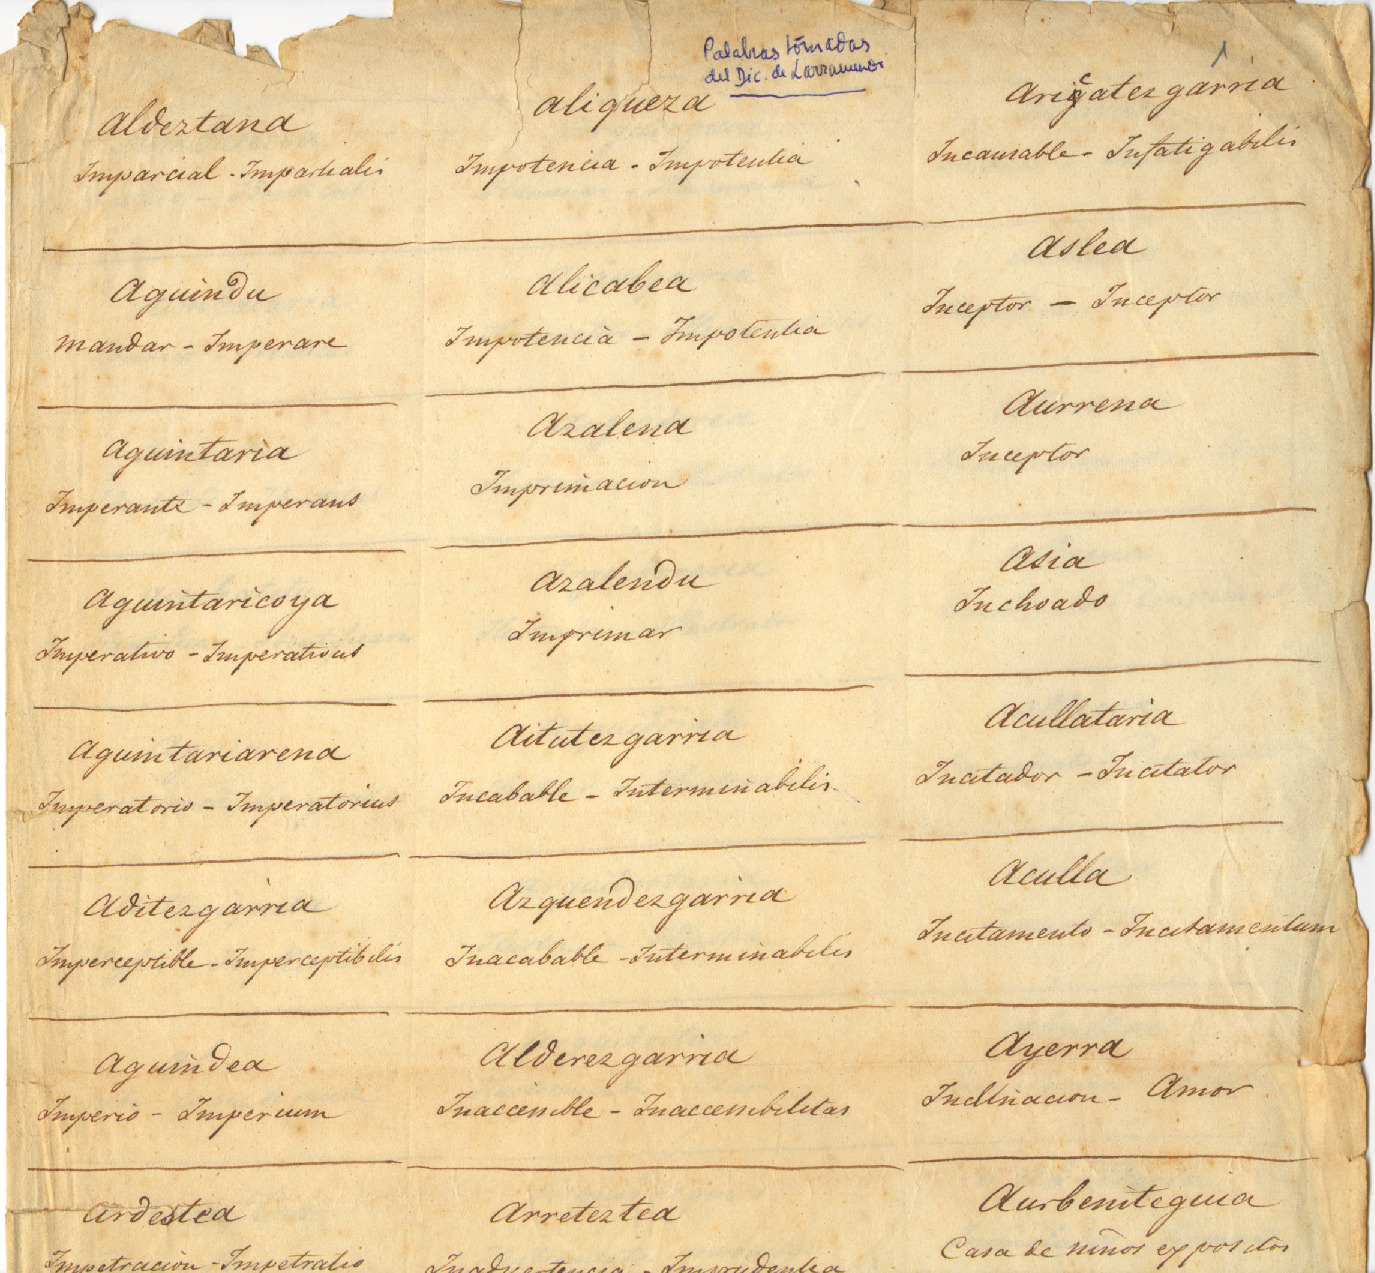 Palabras tomadas
del Dic. de Larramendi
Aldeztana
Imparcial - Impartialis
Aguindu
Mandar - Imperare
Aguintaria
Imperante - Imperans
Aguintaricoya
Imperativo - Imperativus
Aguintariarena
Imperatorio - Imperatorius
Aditezgarria
Imperceptible - Imperceptibilis
Aguindea
Imperio - Imperium
Ardestea
Impetracion - Impetratio
Aliqueza
Impotencia - Impotentia
Alicabea
Impotencia - Impotentia
Azalena
Imprimacion
Azalendu
Imprimar
Aitutezgarria
Incabable - Interminabilis
Azquendezgarria
Inacabable - Interminabilis
Alderezgarria
Inaccesible - Inaccesibilitas
Arreteztea
Inadvertencia - Imprudentia
1
Aricatezgarria
Incansable - Infatigabilis
Aslea
Inceptor - Inceptor
Aurrena
Inceptor
Asia
Inchoado
Acullataria
Incitador - Incitator
Aculla
Incitamento - Incitamentum
Ayerra
Inclinacion - Amor
Aurbeniteguia
Casa de niños expositos